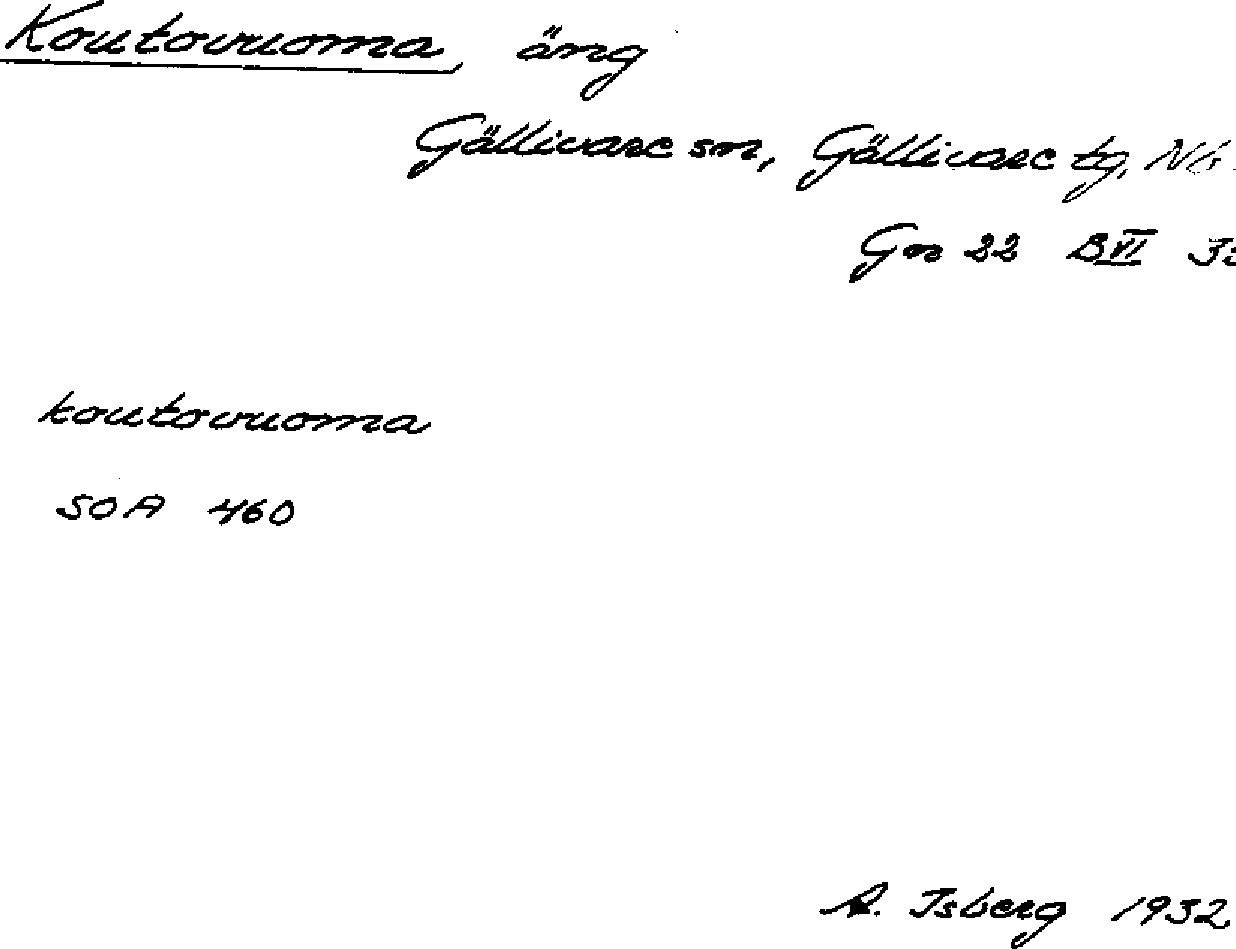 Koutovuoma, äng
Gällivare sn, Gällivare tg, Nb.
Gn 22 BVI
koutovuoma
SOA 460
A. Isberg 1932